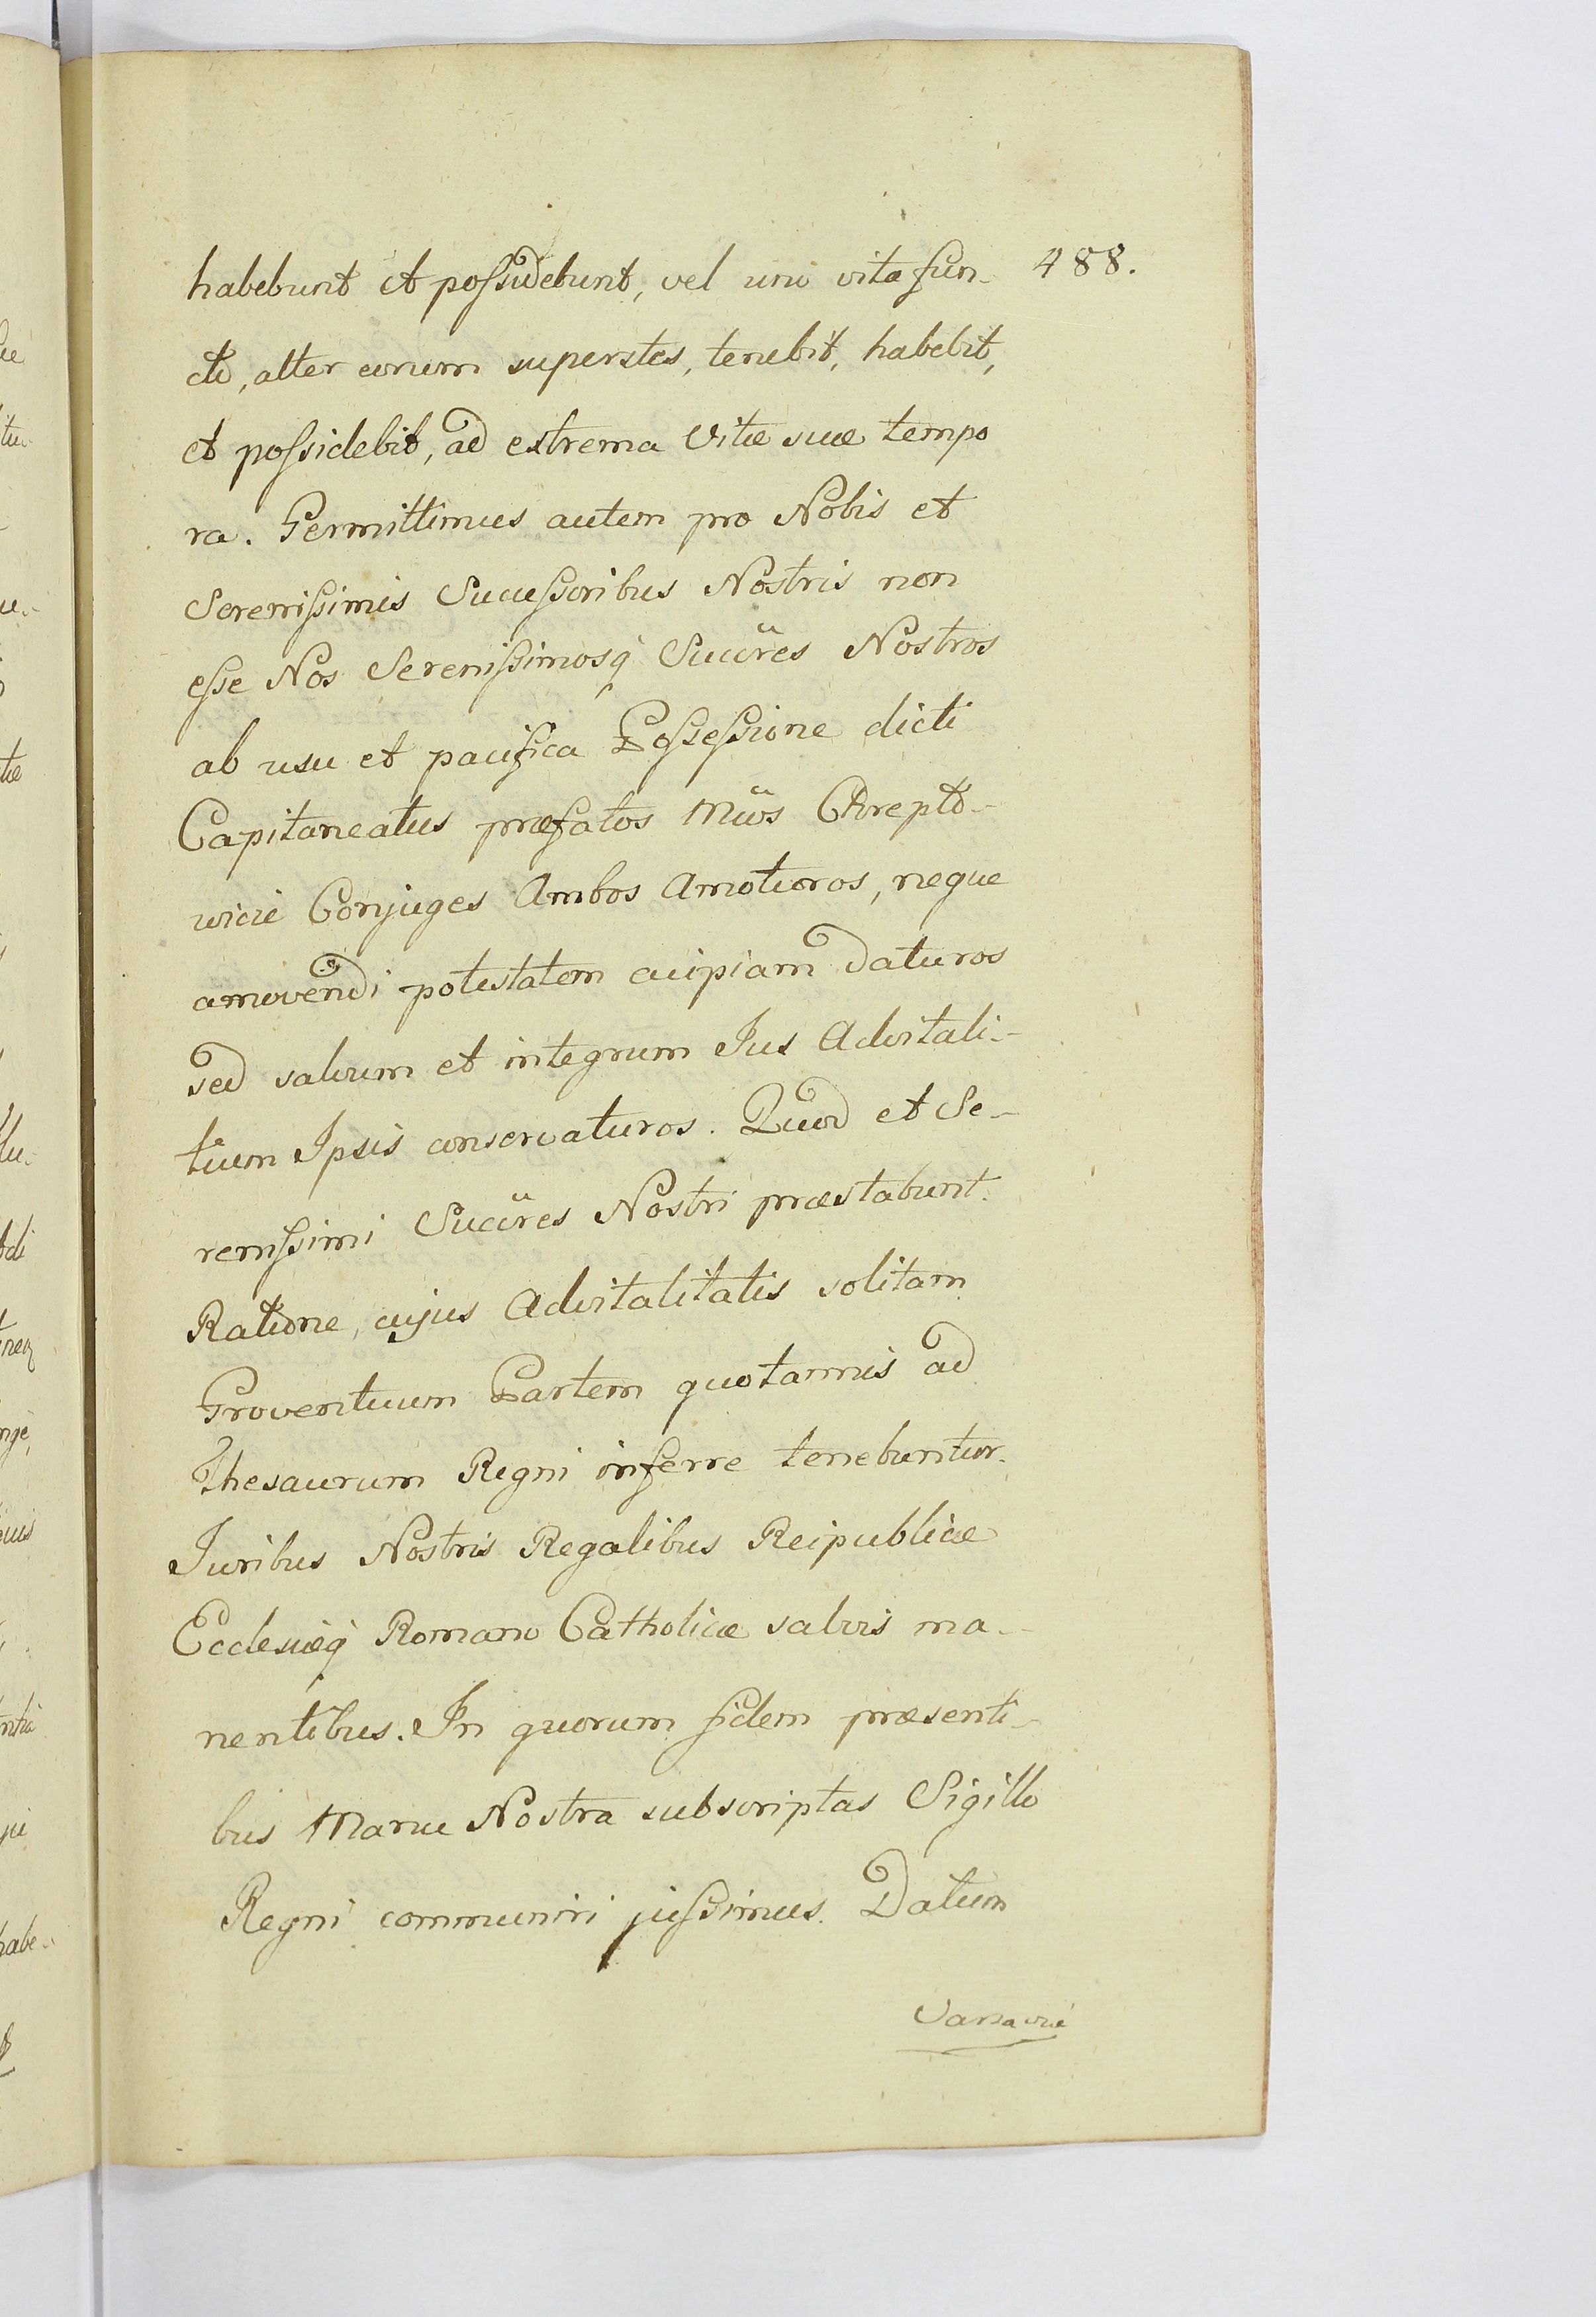 habebunt et possidebunt, vel uno vita fun- 488.
cto, alter eorum superstes, tenebit, habebit,
et possidebit, ad extrema Vitæ suæ tempo
ra. Permittimus autem pro Nobis et
Serenissimis Successoribus Nostris non
esse Nos Serenissimosq́ Succr̃es Nostros
ab usu et pacifica Possessione dicti
Capitaneatus præfatos Mcõs Chrepto-
wicie Conjuges Ambos Amoturos, neque
amovendi potestatem cuipiam daturos
sed salvum et integrum Jus Advitali-
tium Ipsis conservaturos. Quod et Se-
renissimi Succr̃es Nostri præstabunt.
Ratione, cujus Advitalitatis solitam
Proventuum Partem quotannis ad
Thesaurum Regni inferre tenebuntur.
Juribus Nostris Regalibus Reipublicæ
Ecclesiæq́ Romano Catholicæ salvis ma-
nentibus. In quorum fidem præsenti-
bus Manu Nostra subscriptas Sigillo
Regni communiri jussimus. Datum
Varsaviæ